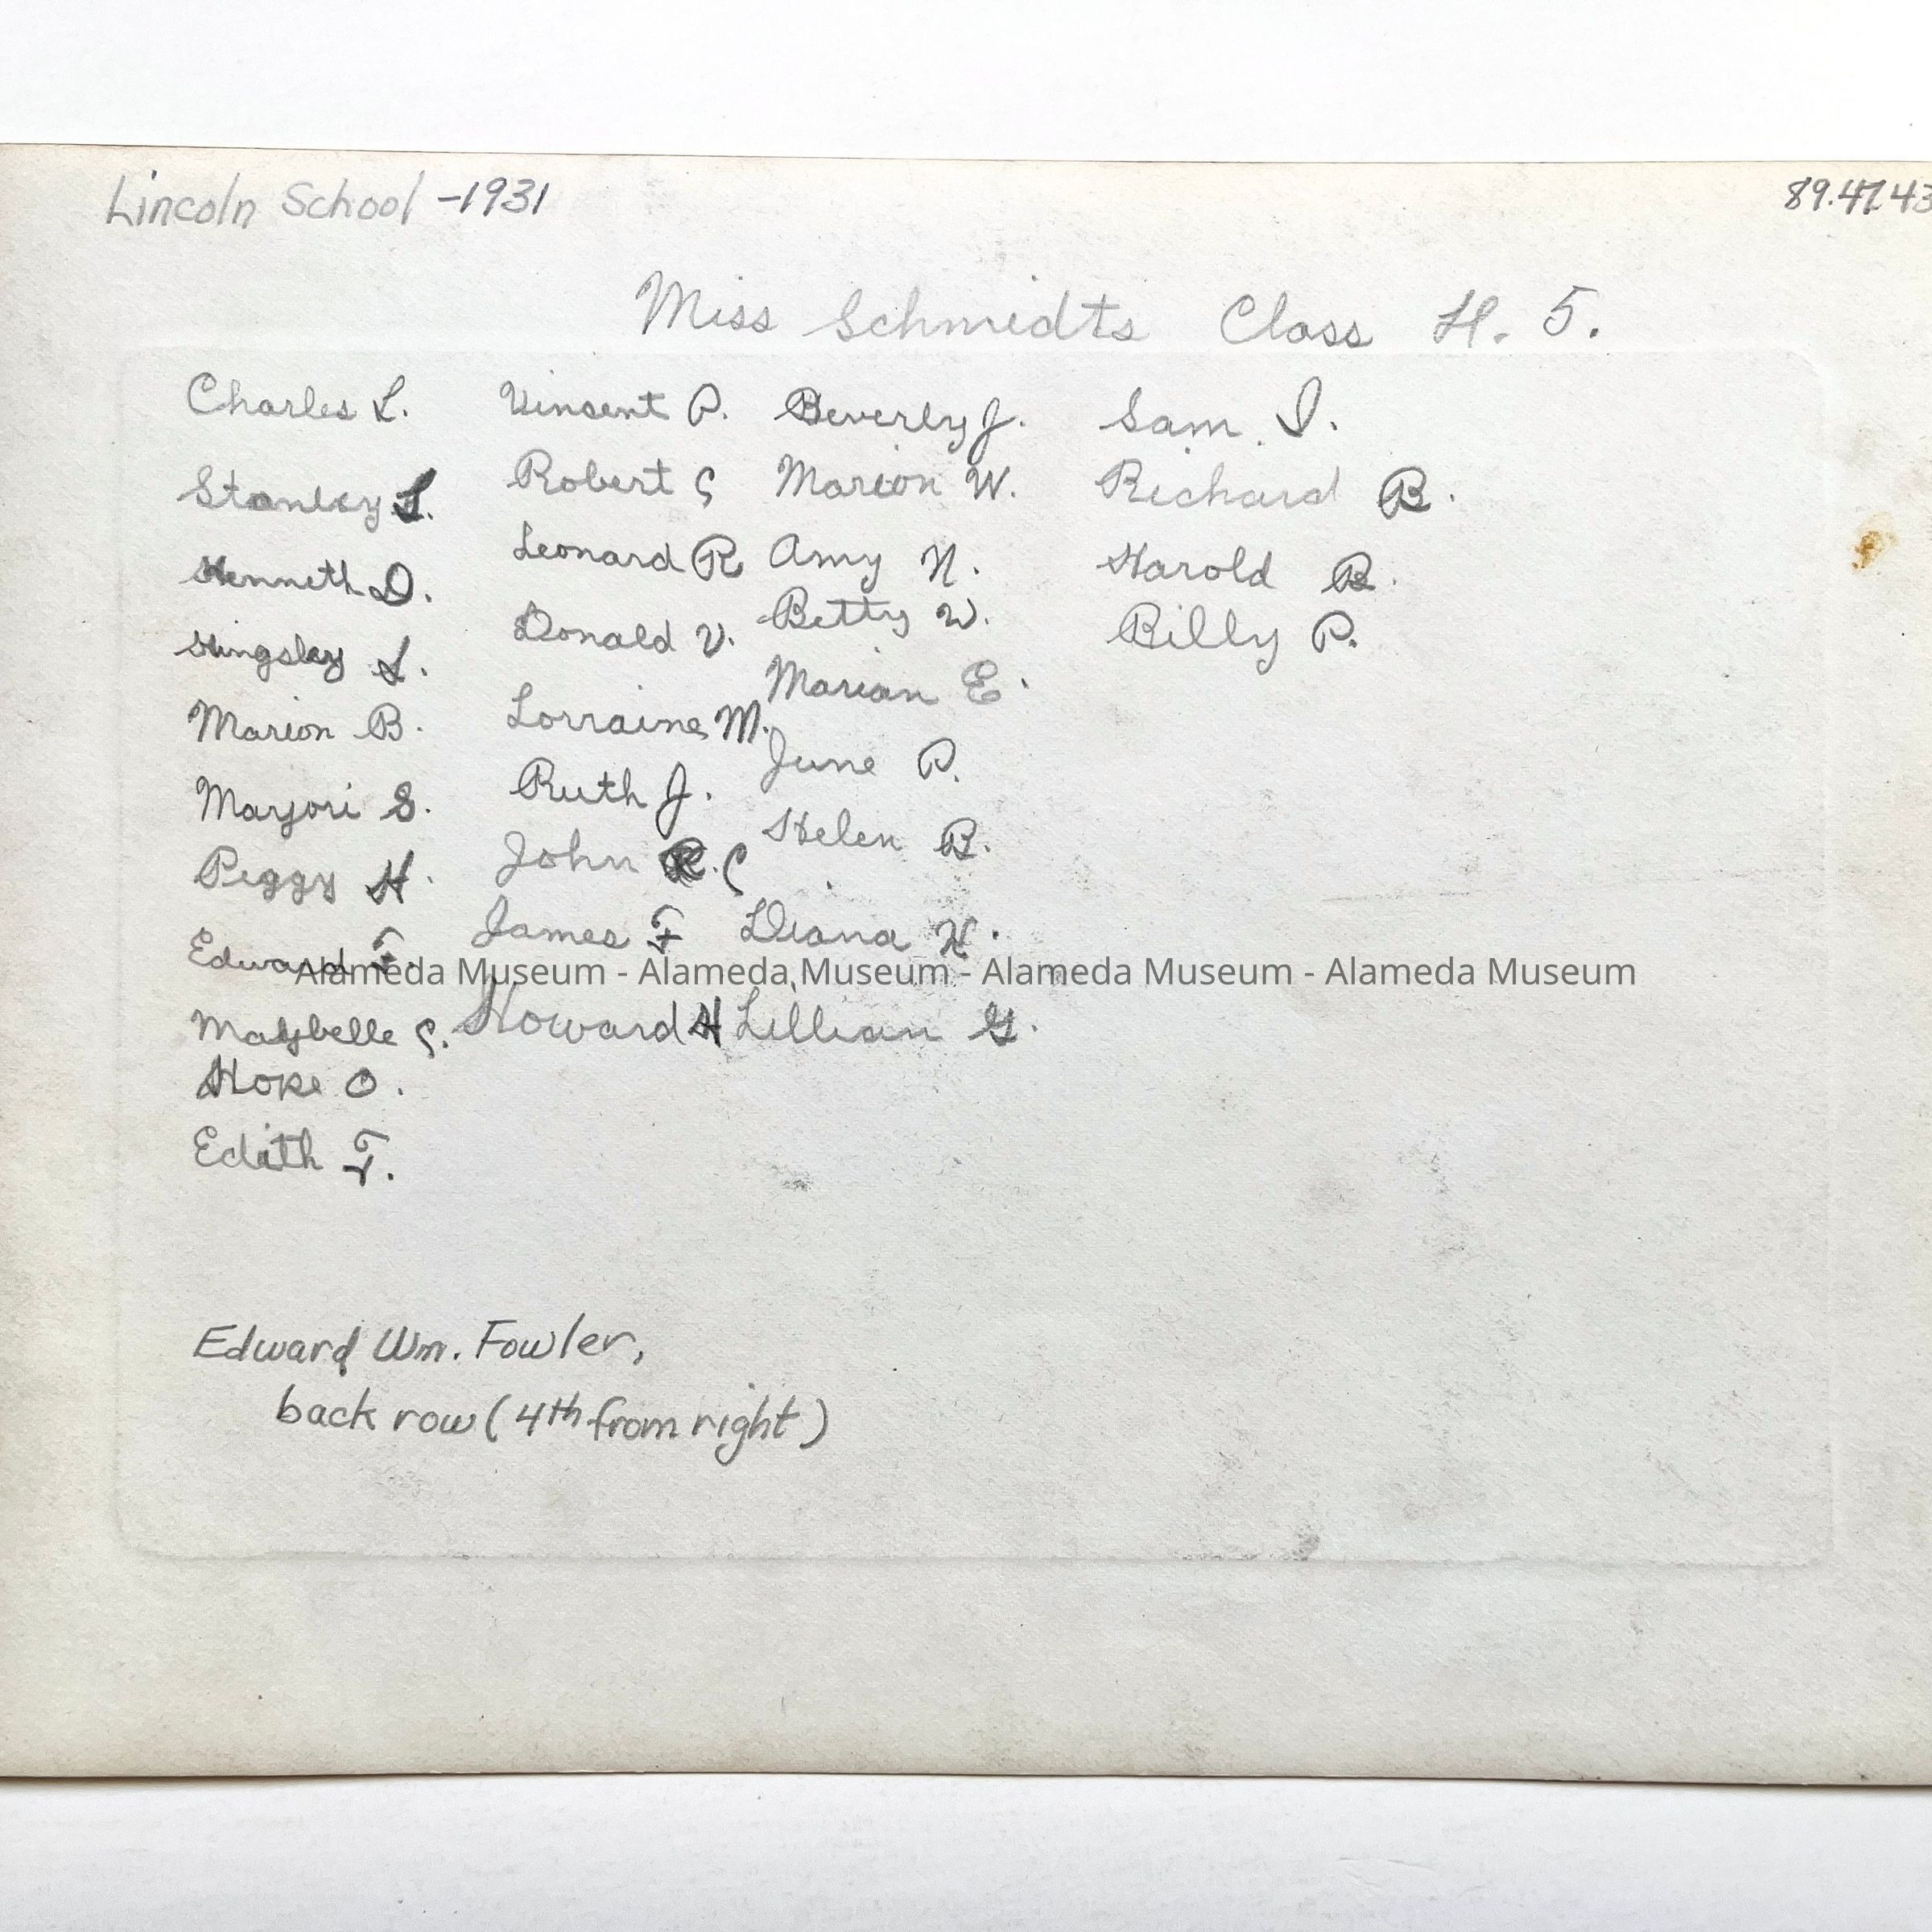 Lincoln School -1931
89.47.43
Miss Schmidts Class H. 5.
Charles L. Vinsent P. Beverly J. Sam. I.
Stanley L. Robert C Marion W. Richard B.
Kenneth D. Leonard R Amy N. Harold B.
Kingsley L. Donald V. Betty W. Billy P.
Marion B. Lorraine M. Marian E.
Marjori S. Ruth J. June P.
Peggy H. John C Helen B.
Edward F. James F Diana K.
Maybelle C. Howard H Lillian G.
Hoke O.
Edith F.
Alameda Museum - Alameda Museum - Alameda Museum - Alameda Museum
Edward Wm. Fowler,
back row (4th from right)